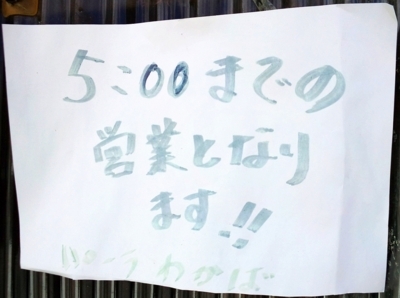 5:00までの
営業となり
ます!!
わかば